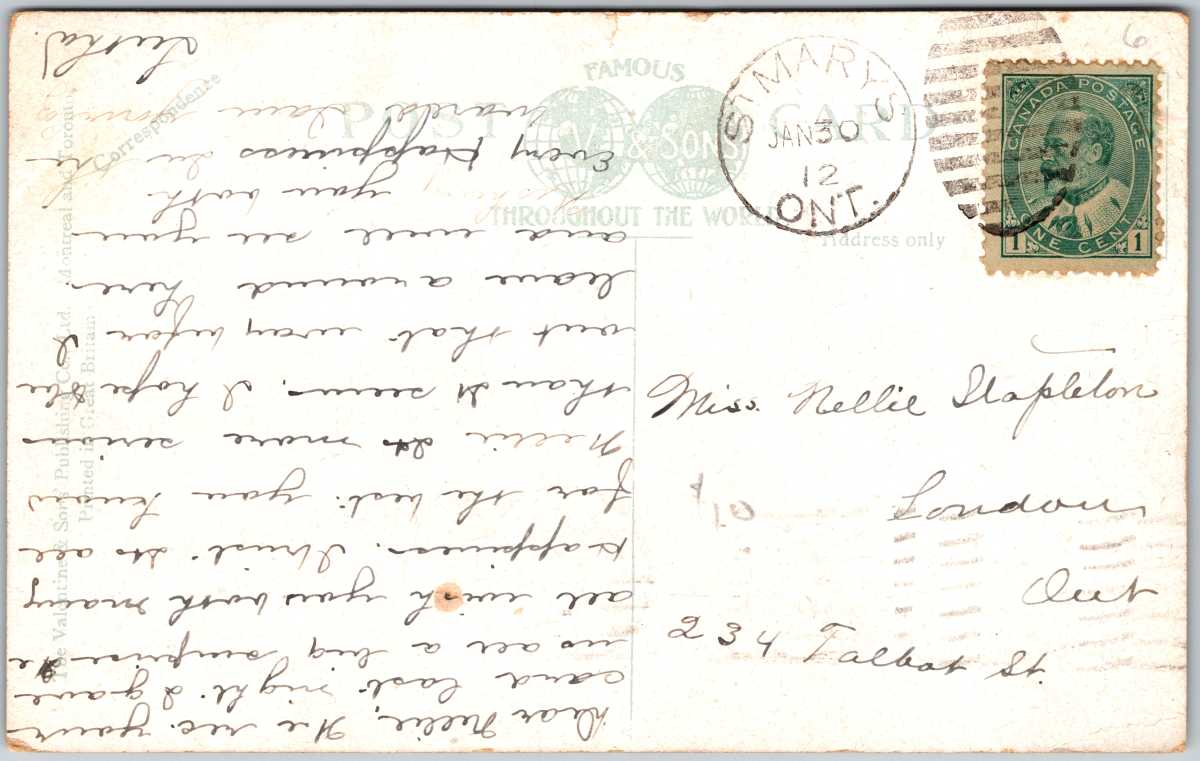 FAMOUS
POST CARD
V. & SONS
THROUGHOUT THE WORLD
Address only
Correspondence
The Valentine & Sons' Publishing Co., Ltd. Montreal and Toronto.
Printed in Great Britain
ST MARYS
JAN 30
12
ONT.
CANADA POSTAGE
1 ONE CENT 1
6
Miss. Nellie Stapleton
London
Ont
234 Talbot St.
10
Dear Nellie, We rec. your
card last night. I gave
us all a big surprise We
all wish you both many
Happiness. I trust its all
for the best. you know
Nellie its more serious
than it seems. I hope to be
out that way before I
leave around here.
and will see you.
you both
Every Happiness in the
world